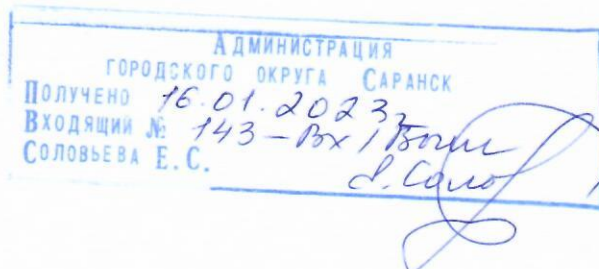 АДМИНИСТРАЦИЯ
ГОРОДСКОГО ОКРУГА САРАНСК
ПОЛУЧЕНО 16.01.2023г
ВХОДЯЩИЙ № 143-Вх/
СОЛОВЬЕВА Е.С.